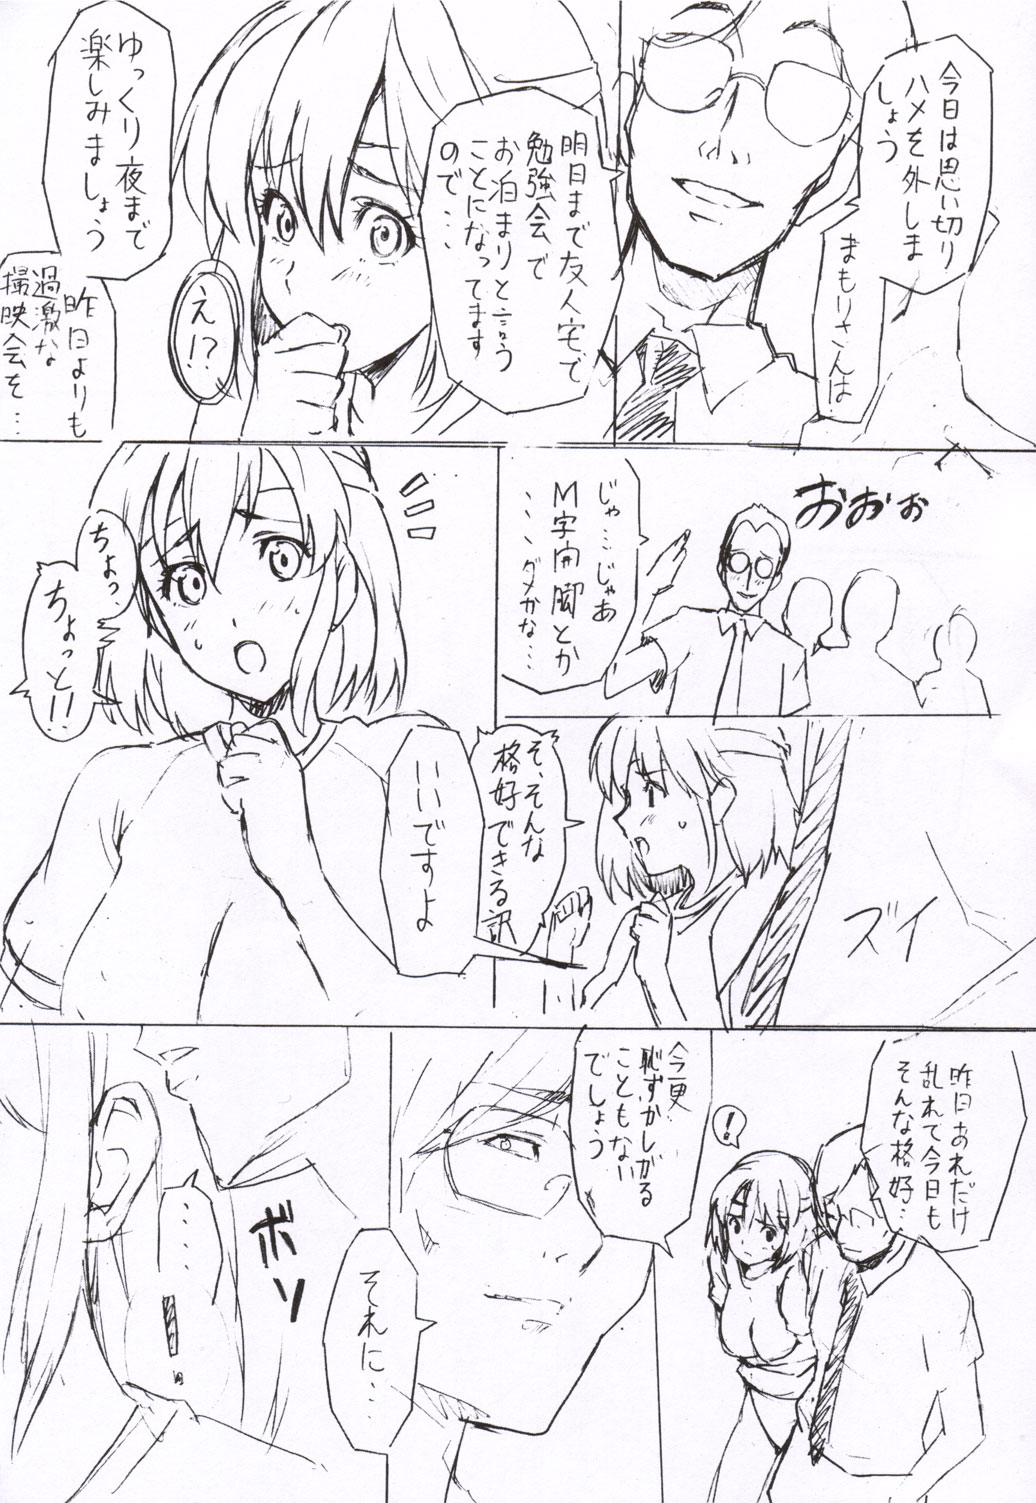 今日は思い切り
ハメを外しま
しょう
まもりさんは
明日まで友人宅で
勉強会で
お泊まりと言う
ことになってます
ので…
え!?
ゆっくり夜まで
楽しみましょう
昨日よりも
過激な
撮映会を…
おおぉ
じゃ…じゃあ
M字開脚とか
、、、ダメかな…
ちょっ、
ちょっと!!
そ、そんな
格好できる訳
いいですよ
ズイ
昨日あれだけ
乱れて今日も
そんな格好…
!
今更
恥ずかしがる
こともない
でしょう
それに…
ボソ
……